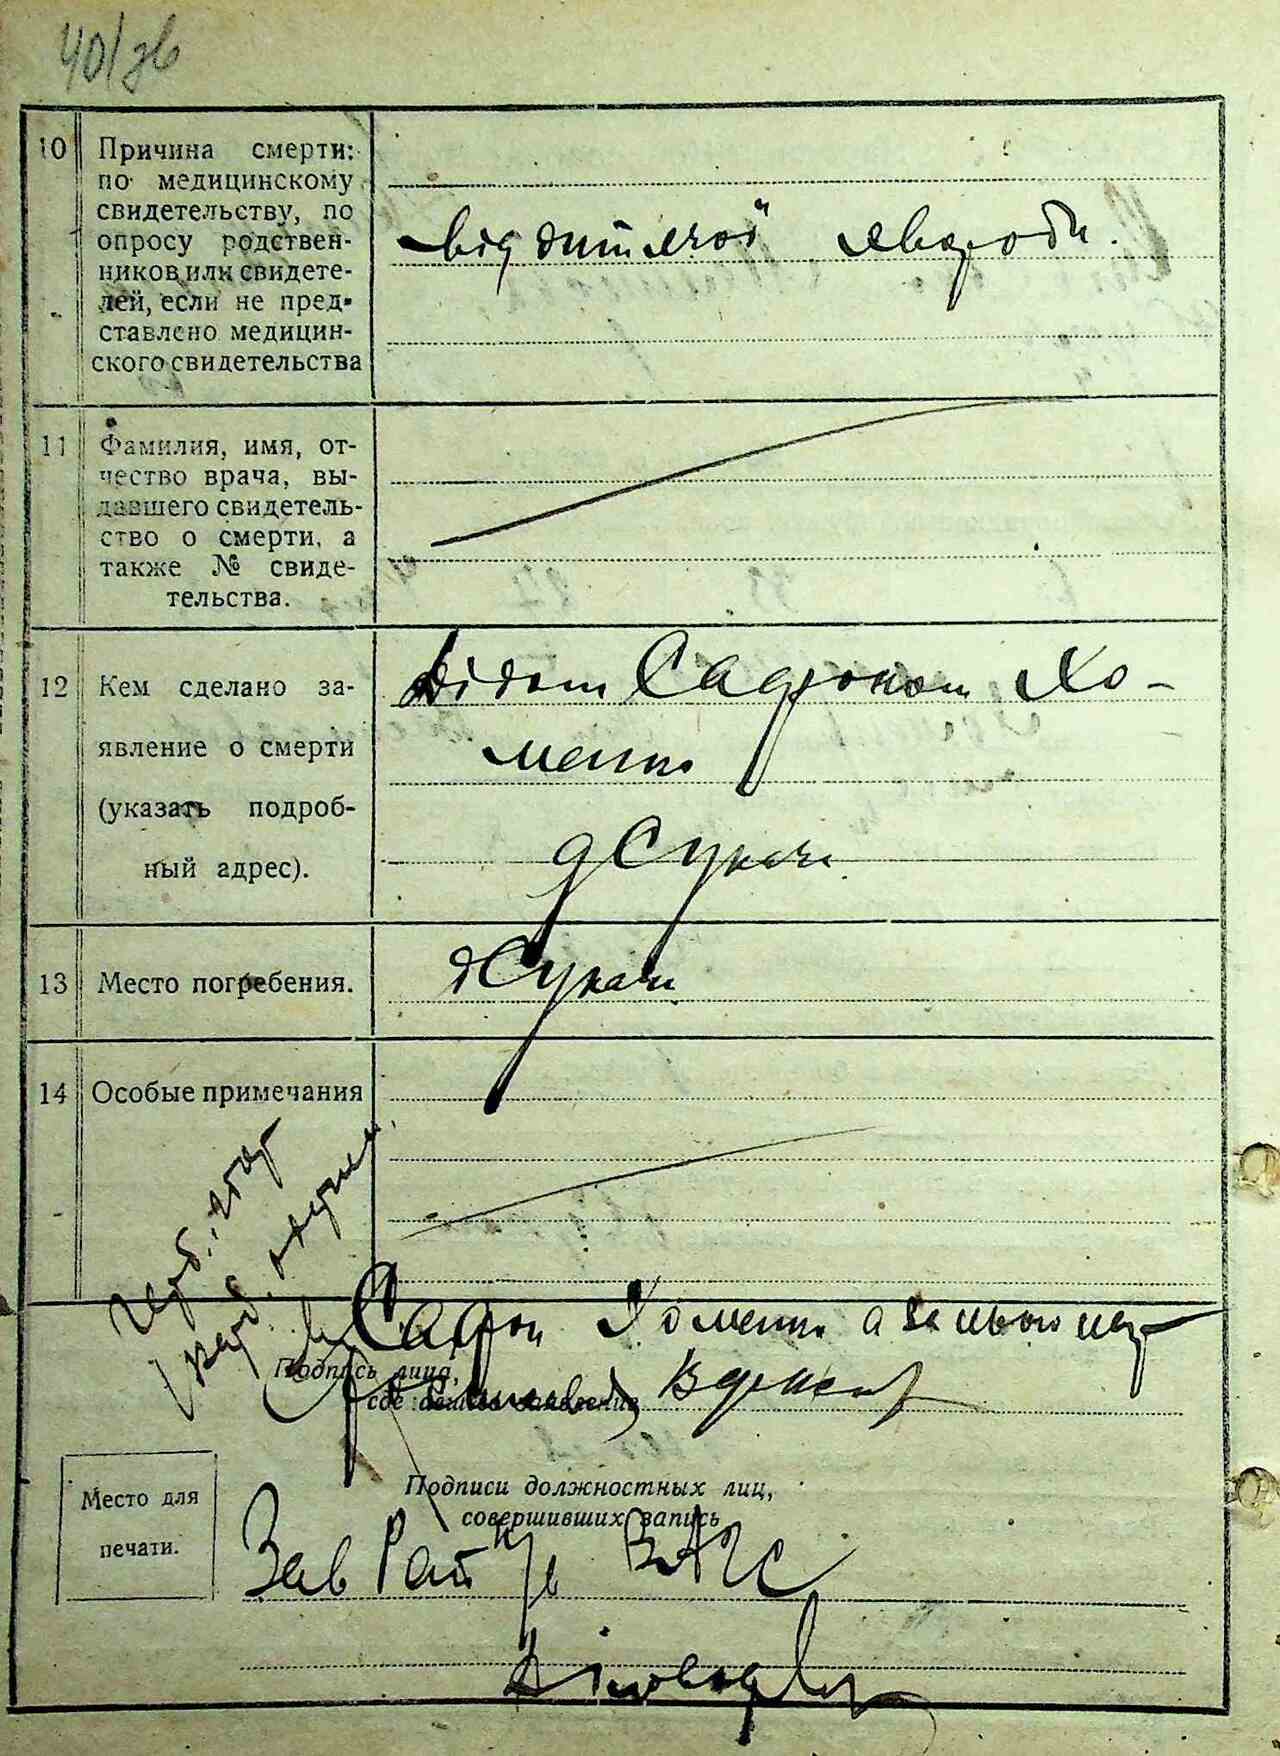 40/зв
10 Причина смерти:
по медицинскому
свидетельству, по
опросу родствен-
ников или свидете-
лей, если не пред-
ставлено медицин-
ского свидетельства
від дитячої хвороби.
11 Фамилия, имя, от-
чество врача, вы-
давшего свидетель-
ство о смерти, а
также № свиде-
тельства.
12 Кем сделано за-
явление о смерти
(указать подроб-
ный адрес).
дідом Сафроном Хо-
менко
д Сукачі
13 Место погребения.
д Сукачі
14 Особые примечания
Сафрон Хоменко а за нього
Подпись лица,
сделавшего заявление
Подписи должностных лиц,
совершивших запись
Место для
печати.
Зав Рай ЗАГС